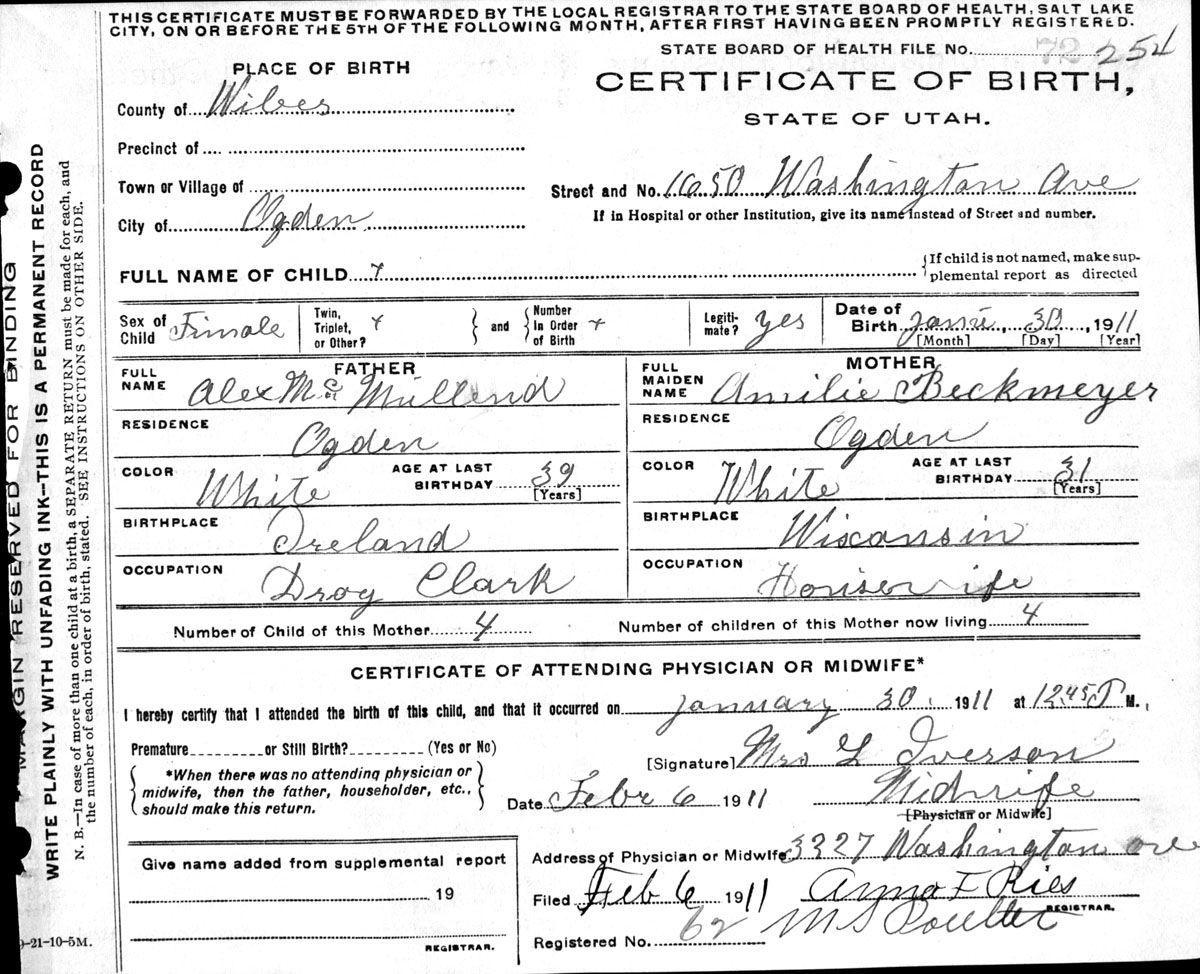 THIS CERTIFICATE MUST BE FORWARDED BY THE LOCAL REGISTRAR TO THE STATE BOARD OF HEALTH, SALT LAKE
CITY, ON OR BEFORE THE 5TH OF THE FOLLOWING MONTH, AFTER FIRST HAVING BEEN PROMPTLY REGISTERED.
STATE BOARD OF HEALTH FILE No. 72 254
PLACE OF BIRTH
CERTIFICATE OF BIRTH,
STATE OF UTAH.
County of Wibes
Precinct of
Town or Village of
Street and No. 1650 Washington Ave
City of Ogden
If in Hospital or other Institution, give its name instead of Street and number.
FULL NAME OF CHILD +
{If child is not named, make sup-
plemental report as directed
Sex of Child Fimale
Twin, Triplet, or Other? +
} and {
Number In Order of Birth +
Legiti-mate? yes
Date of Birth Janu, 30, 1911
[Month] [Day] [Year]
FATHER
FULL NAME Alex Mc Mullend
MOTHER
FULL MAIDEN NAME Amilie Beckmeyer
RESIDENCE Ogden
RESIDENCE Ogden
COLOR White
AGE AT LAST BIRTHDAY 39 [Years]
COLOR White
AGE AT LAST BIRTHDAY 31 [Years]
BIRTHPLACE Ireland
BIRTHPLACE Wisconsin
OCCUPATION Drog Clark
OCCUPATION Housewife
Number of Child of this Mother 4
Number of children of this Mother now living 4
CERTIFICATE OF ATTENDING PHYSICIAN OR MIDWIFE*
I hereby certify that I attended the birth of this child, and that it occurred on January 30, 1911 at 12.45 P M.,
Premature or Still Birth? (Yes or No)
[Signature] Mrs L Iverson
{ *When there was no attending physician or
midwife, then the father, householder, etc.,
should make this return. }
Date Febr 6 1911
Midwife
[Physician or Midwife]
Give name added from supplemental report
19
REGISTRAR.
Address of Physician or Midwife 3327 Washington ave
Filed Feb 6 1911 Anna F Ries
REGISTRAR.
Registered No. 62 M S Poulter
MARGIN RESERVED FOR BINDING
WRITE PLAINLY WITH UNFADING INK--THIS IS A PERMANENT RECORD
N. B.—In case of more than one child at a birth, a SEPARATE RETURN must be made for each, and
the number of each, in order of birth, stated. SEE INSTRUCTIONS ON OTHER SIDE.
-21-10-5M.